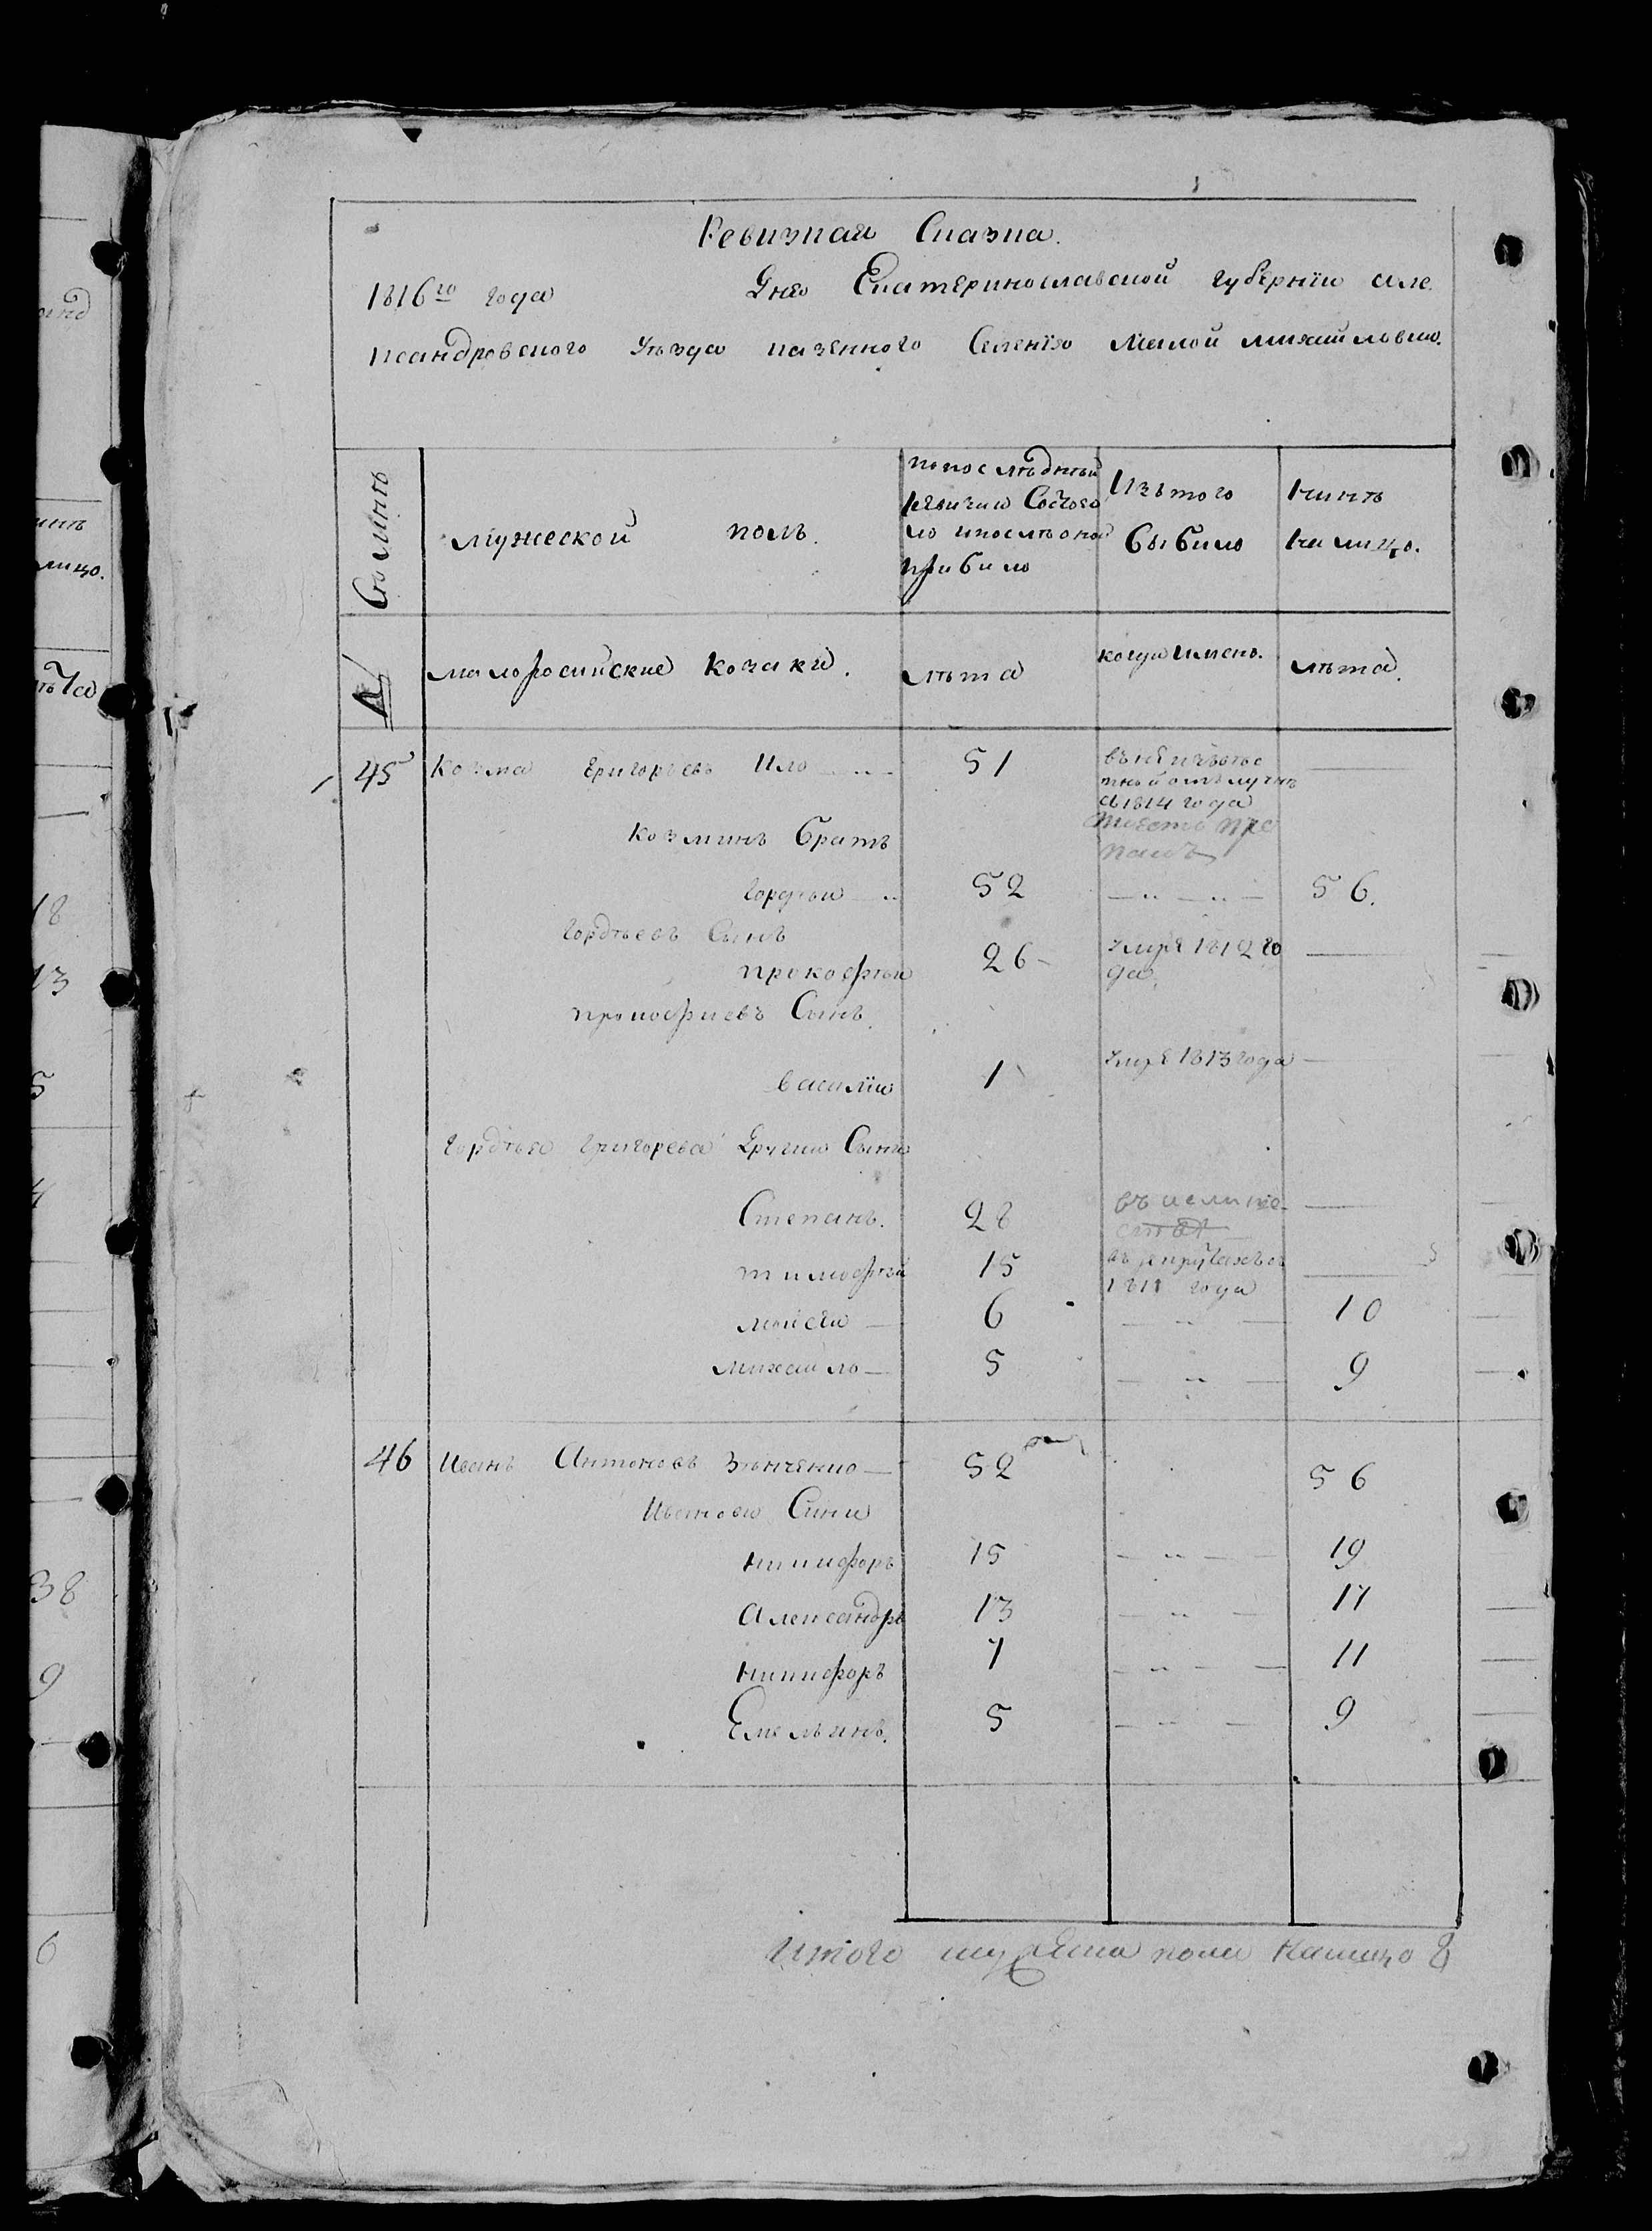 Ревизная Сказка.
1816го года Дня Екатеринославской губернїи але
ксандровского Уезда казенного Селенїя Малой михайловки.
Семьи
мужеской полъ.
попоследней ревизии Состояло ипослѣ оной прибыло
Изътого выбыло
Нынѣ налицо.
№
малоросийские козаки.
лѣта
когда имено.
лѣта.
45 Козма Григорьевъ 51 съ 1814 года
Козминъ братъ
Гордѣй 52 — „ — „ — 56.
Гордѣевъ Сынъ
прокофѣй 26 умре 1812 года.
прокофиевъ Сынъ
василїй 1 умре 1813 года
Гордѣя Григорева Другии Сыны
Степанъ. 28
тимофѣй 15 врекрутахъ съ 1811 года
моисей 6 — „ — 10
михайло 5 — „ — 9
46 Иванъ Антоновъ Зѣнченко 52 56
Ивановы Сины
никифоръ 15 — „ — 19
Александръ 13 — „ — 17
никифоръ 7 — „ — 11
Емельянъ. 5 — „ — 9
Итого мужска пола налицо 8